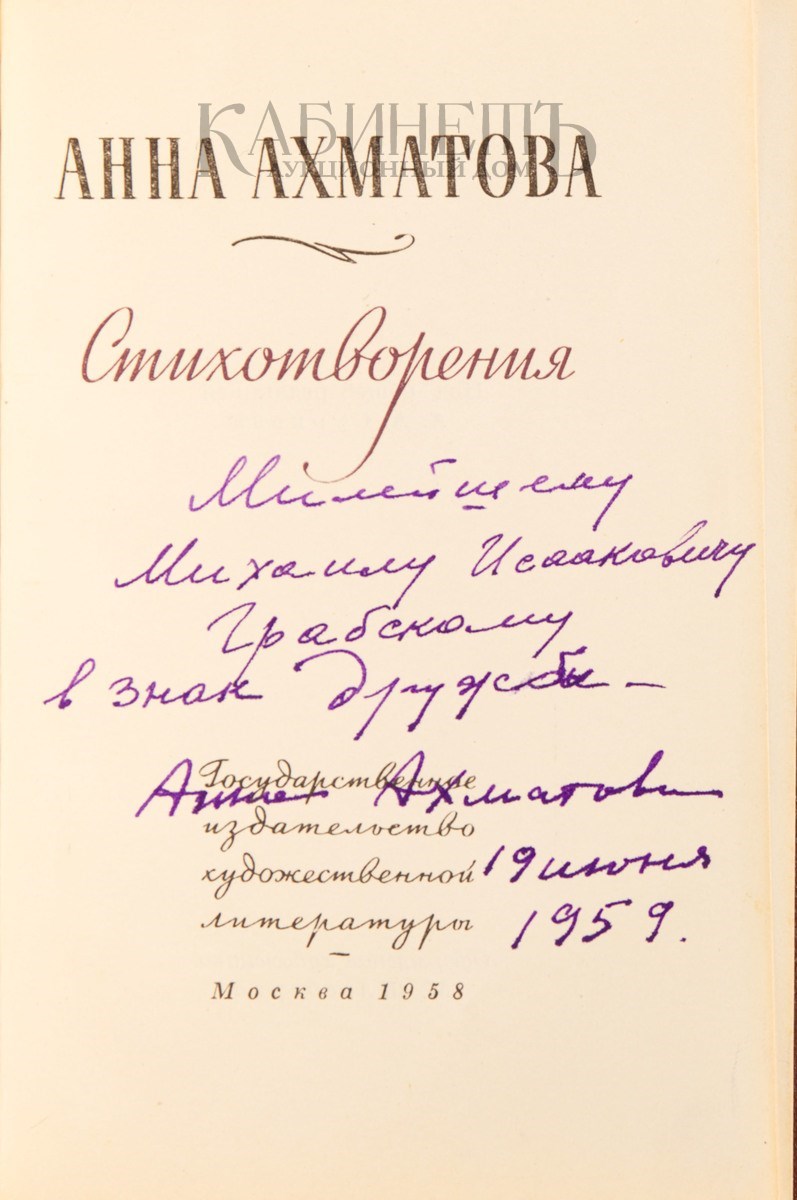 КАБИНЕТЪ
АУКЦИОННЫЙ ДОМ
АННА АХМАТОВА
Стихотворения
Милейшему
Михаилу Исааковичу
Грабскому
в знак дружбы –
Анна Ахматова
Государственное
издательство
художественной
литературы
19 июня
1959.
Москва 1958